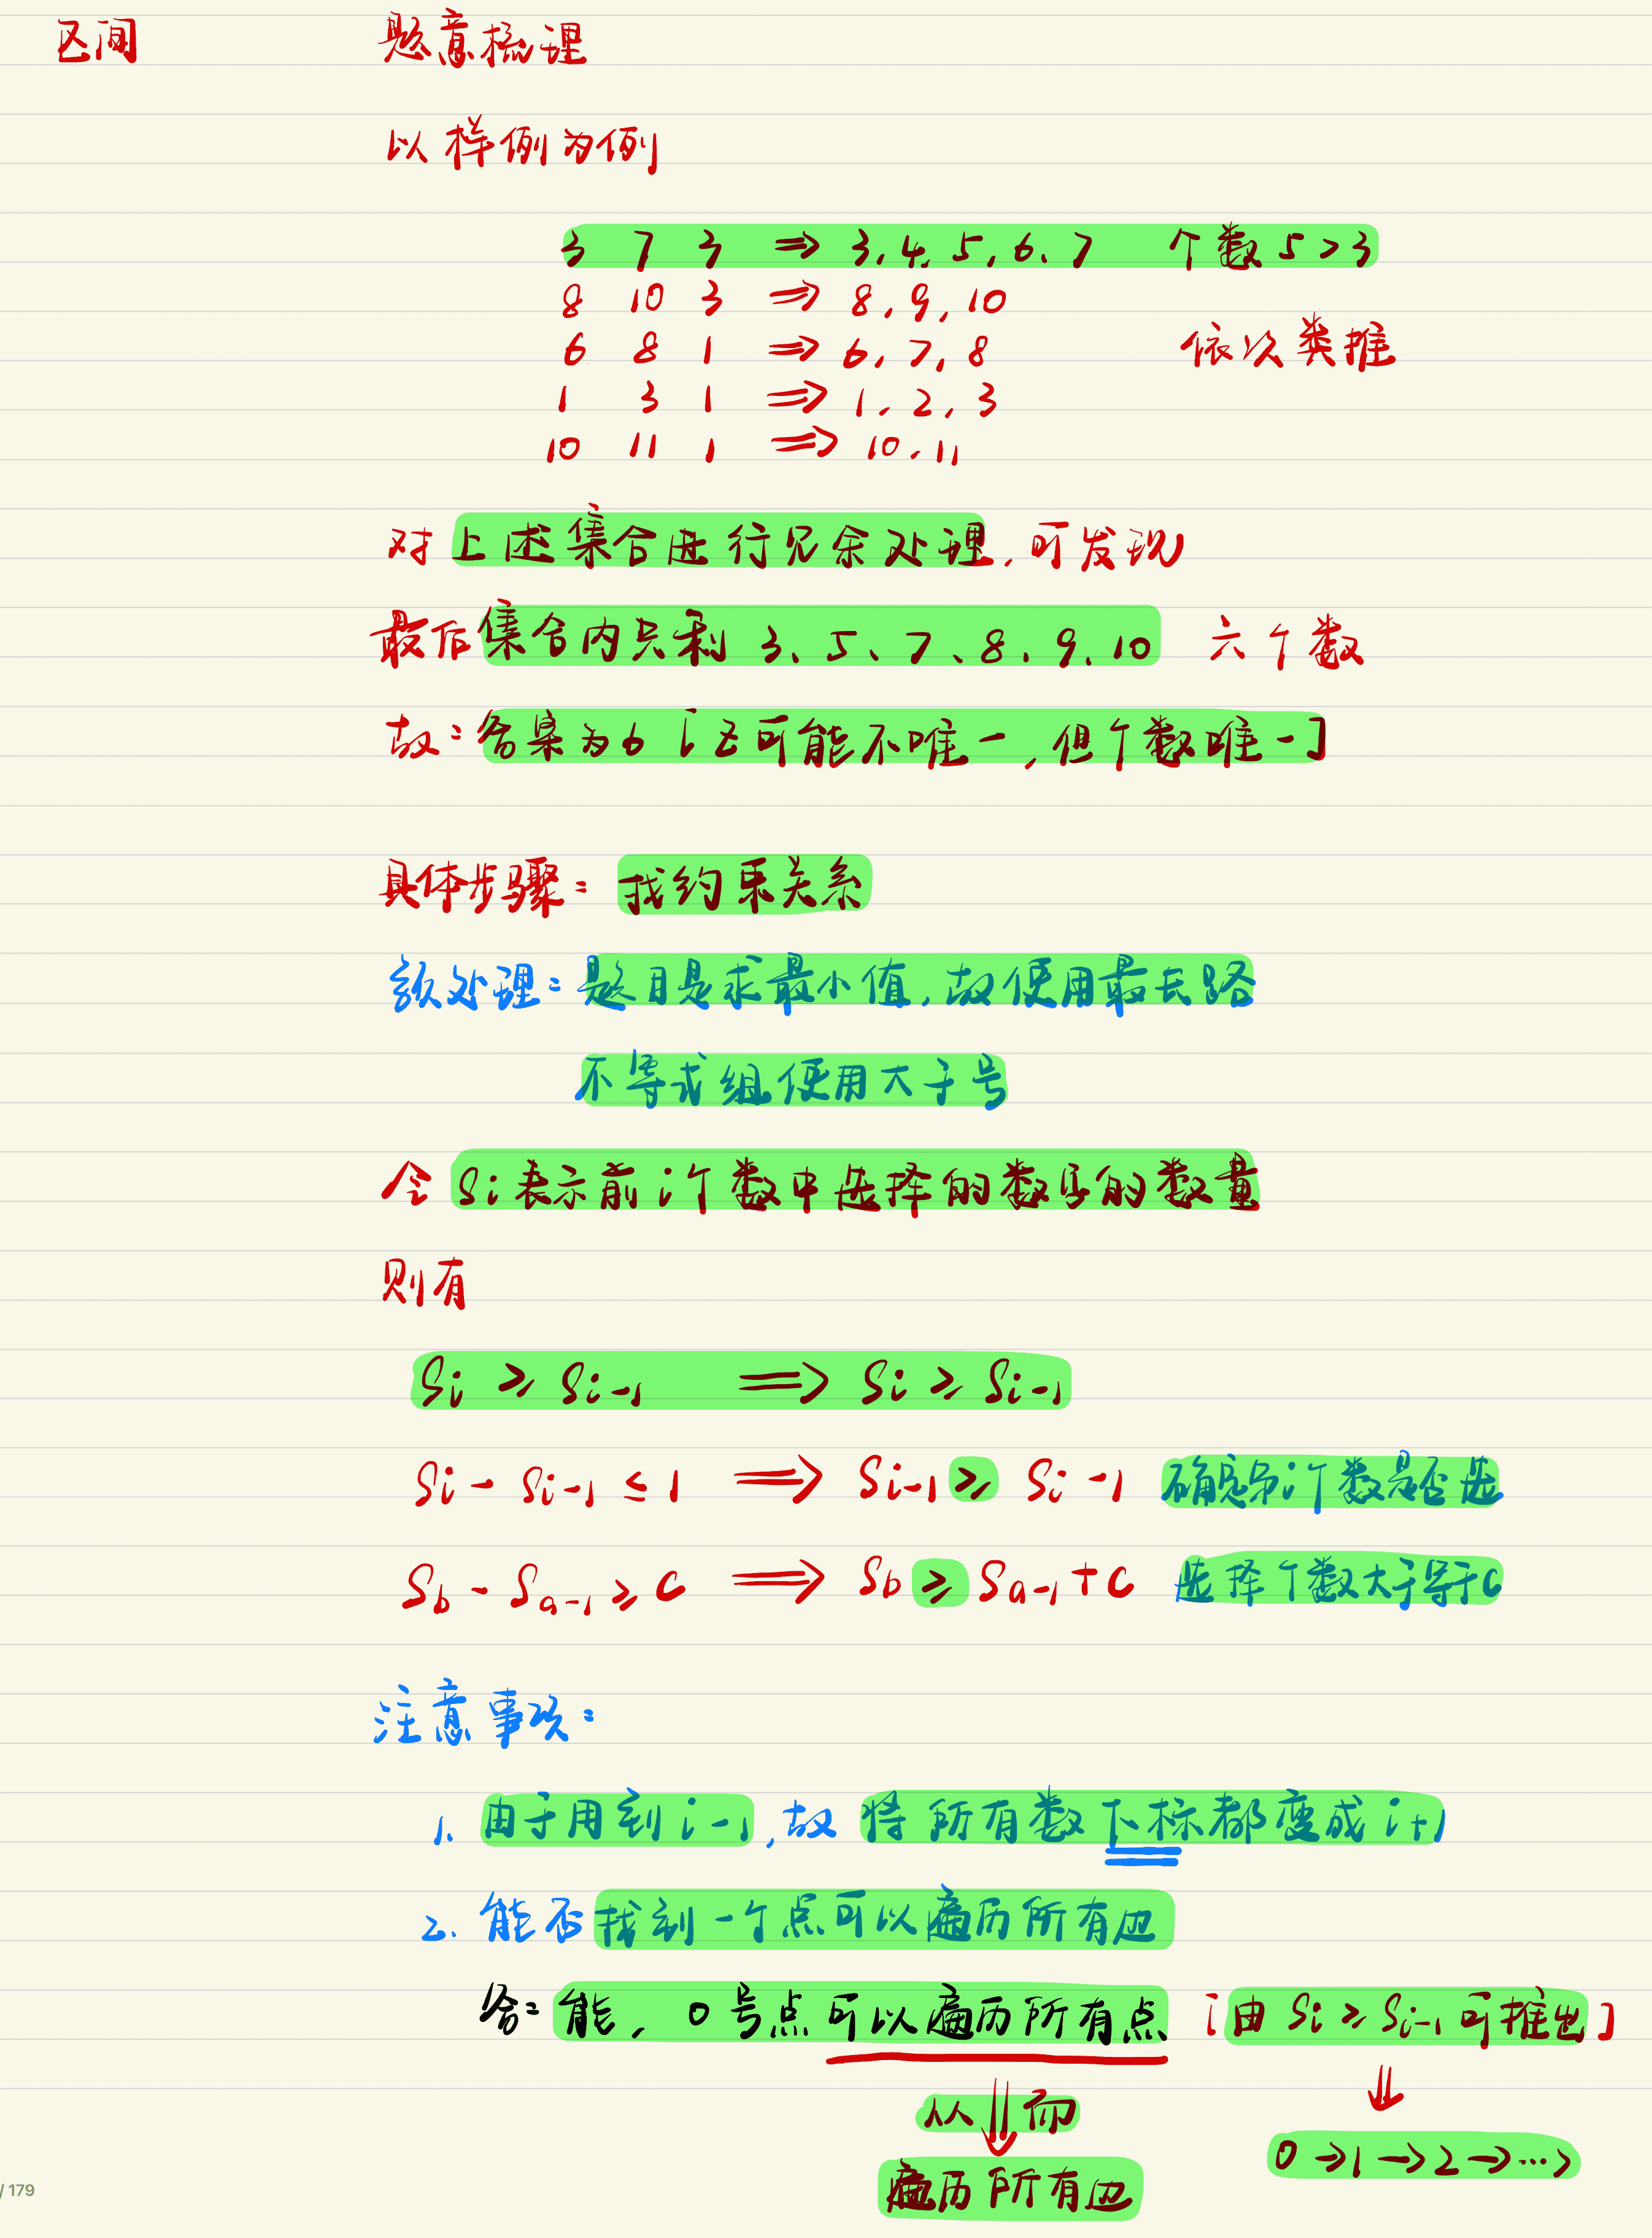 区间 题意梳理
以样例为例
3 7 3 ⇒ 3,4,5,6,7 个数5>3
8 10 3 ⇒ 8,9,10
6 8 1 ⇒ 6,7,8 依次类推
1 3 1 ⇒ 1,2,3
10 11 1 ⇒ 10,11
对上述集合进行冗余处理,可发现
最后集合内只剩 3、5、7、8、9、10 六个数
故:答案为6 [Z可能不唯一,但个数唯一]
具体步骤:找约束关系
预处理:题目是求最小值,故使用最长路
不等式组使用大于号
令 Si表示前i个数中选择的数字的数量
则有
Si ≥ Si-1 ⇒ Si ≥ Si-1
Si - Si-1 ≤ 1 ⇒ Si-1 ≥ Si - 1 确定第i个数是否选
Sb - Sa-1 ≥ C ⇒ Sb ≥ Sa-1 + C 选择个数大于等于C
注意事项:
1. 由于用到i-1,故将所有数下标都变成i+1
2. 能否找到一个点可以遍历所有边
答:能, 0号点可以遍历所有点 [由 Si ≥ Si-1 可推出]
从⇓而 ⇓
遍历所有边 0→1→2→…→
/ 179